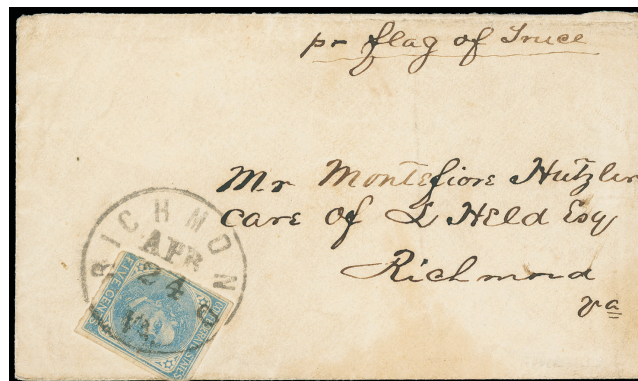 pr flag of Truce
Mr Montefiore Hutzler
care of L Held Esq
Richmond
va
RICHMOND
APR
24
Va.
FIVE CENTS